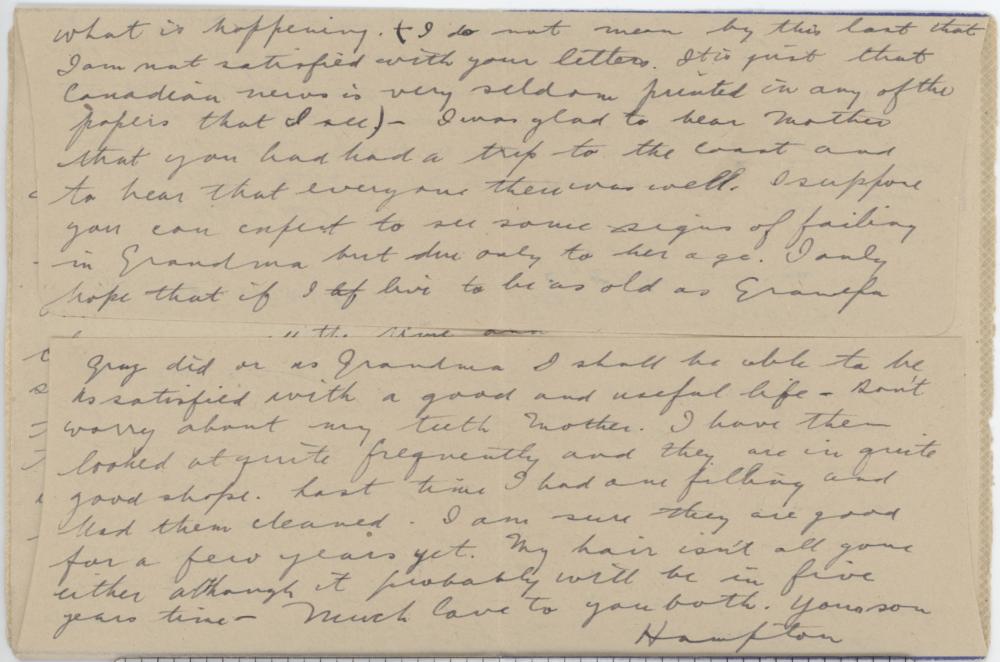 what is happening. (I do not mean by this last that
I am not satisfied with your letters. It is just that
Canadian news is very seldom printed in any of the
papers that I see) - I was glad to hear Mother
that you had had a trip to the coast and
to hear that everyone there was well. I suppose
you can expect to see some signs of failing
in Grandma but due only to her age. I only
hope that if I live to be as old as Grandpa
the time
Gray did or as Grandma I shall be able to be
as satisfied with a good and useful life - Don't
worry about my teeth Mother. I have them
looked at quite frequently and they are in quite
good shape. Last time I had one filling and
had them cleaned. I am sure they are good
for a few years yet. My hair isn't all gone
either although it probably will be in five
years time - Much love to you both. Your son
Hampton